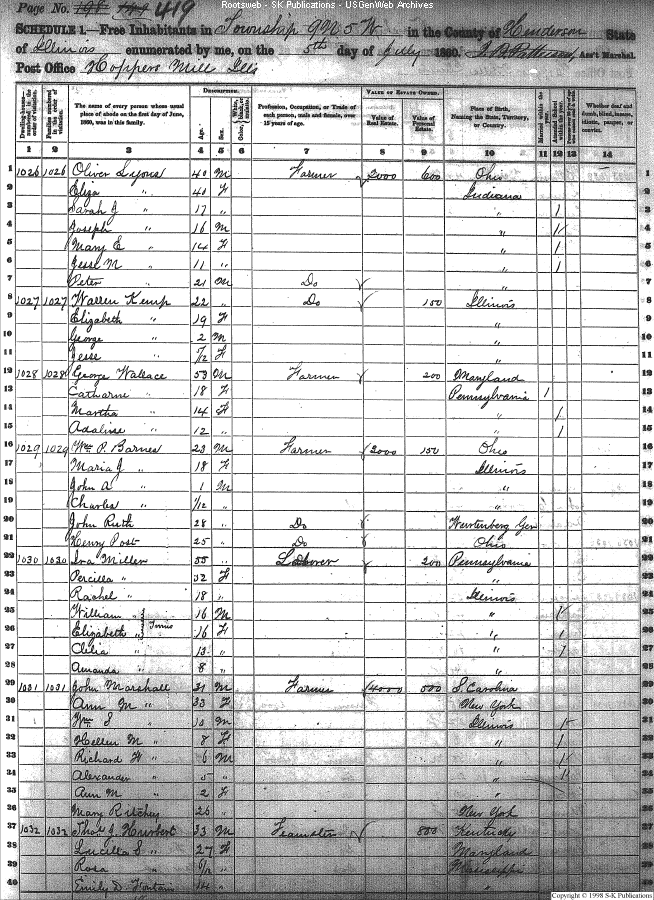 Rootsweb - SK Publications - USGenWeb Archives
Page No. 198 419
SCHEDULE 1.—Free Inhabitants in Township 9N 5W in the County of Henderson State
of Illinois enumerated by me, on the 5th day of July 1860. Ass't Marshal.
Post Office Hoppers Mill Ills
Dwelling-houses—numbered in the order of visitation.
Families numbered in the order of visitation.
The name of every person whose usual place of abode on the first day of June, 1860, was in this family.
DESCRIPTION.
Age.
Sex.
Color, White, black, or mulatto.
Profession, Occupation, or Trade of each person, male and female, over 15 years of age.
VALUE OF ESTATE OWNED.
Value of Real Estate.
Value of Personal Estate.
Place of Birth, Naming the State, Territory, or Country.
Married within the year.
Attended School within the year.
Whether deaf and dumb, blind, insane, idiotic, pauper, or convict.
1 2 3 4 5 6 7 8 9 10 11 12 13 14
1 1026 1026 Oliver Lyons 40 M Farmer 2000 600 Ohio 1
2 Eliza " 40 F Indiana 2
3 Sarah J " 17 " " 1 3
4 Joseph " 16 M " 1 4
5 Mary E " 14 F " 1 5
6 Jesse M " 11 " " 1 6
7 Peter " 21 M Do " 7
8 1027 1027 Warren Kemp 22 " Do 100 Illinois 8
9 Elizabeth " 19 F " 9
10 George " 2 M " 10
11 Jesse " /12 F " 11
12 1028 1028 George Wallace 53 M Farmer 200 Maryland 12
13 Catharine " 18 F Pennsylvania 1 13
14 Martha " 14 F " 1 14
15 Adaline " 12 " " 1 15
16 1029 1029 Wm P. Barnes 23 M Farmer 2000 150 Ohio 16
17 Maria J " 18 F Illinois 17
18 John A " 1 M " 18
19 Charles " /12 " " 19
20 John Ruth 28 " Do Wurtenberg Ger 20
21 Henry Post 25 " Do Ohio 21
22 1030 1030 Ira Miller 55 " Laborer 200 Pennsylvania 22
23 Percilla " 52 F " 23
24 Rachel " 18 " Illinois 24
25 William " Twins 16 M " 1 25
26 Elizabeth " 16 F " 1 26
27 Clilia " 13 " " 1 27
28 Amanda " 8 " " 28
29 1031 1031 John Marshall 31 M Farmer 4000 500 S. Carolina 29
30 Ann M " 33 F New York 30
31 Wm S " 10 M Illinois 1 31
32 Hellen M " 8 F " 1 32
33 Richard H " 6 M " 1 33
34 Alexander " 5 " " 1 34
35 Ann M " 2 F " 35
36 Mary Ritchey 26 " New York 36
37 1032 1032 Thos J. Hurbert 33 M Teamster 800 Kentucky 37
38 Lucilla S " 27 F Maryland 38
39 Rosa " /12 " Mississippi 39
40 Emily D. Fontain 14 " " 40
Copyright © 1998 S-K Publications